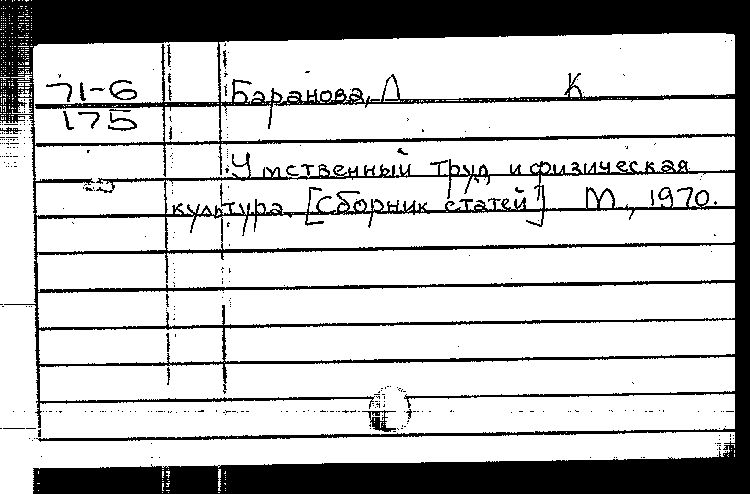 71-6 Баранова, Л К
175
Умственный труд и физическая
культура. [Сборник статей] М., 1970.